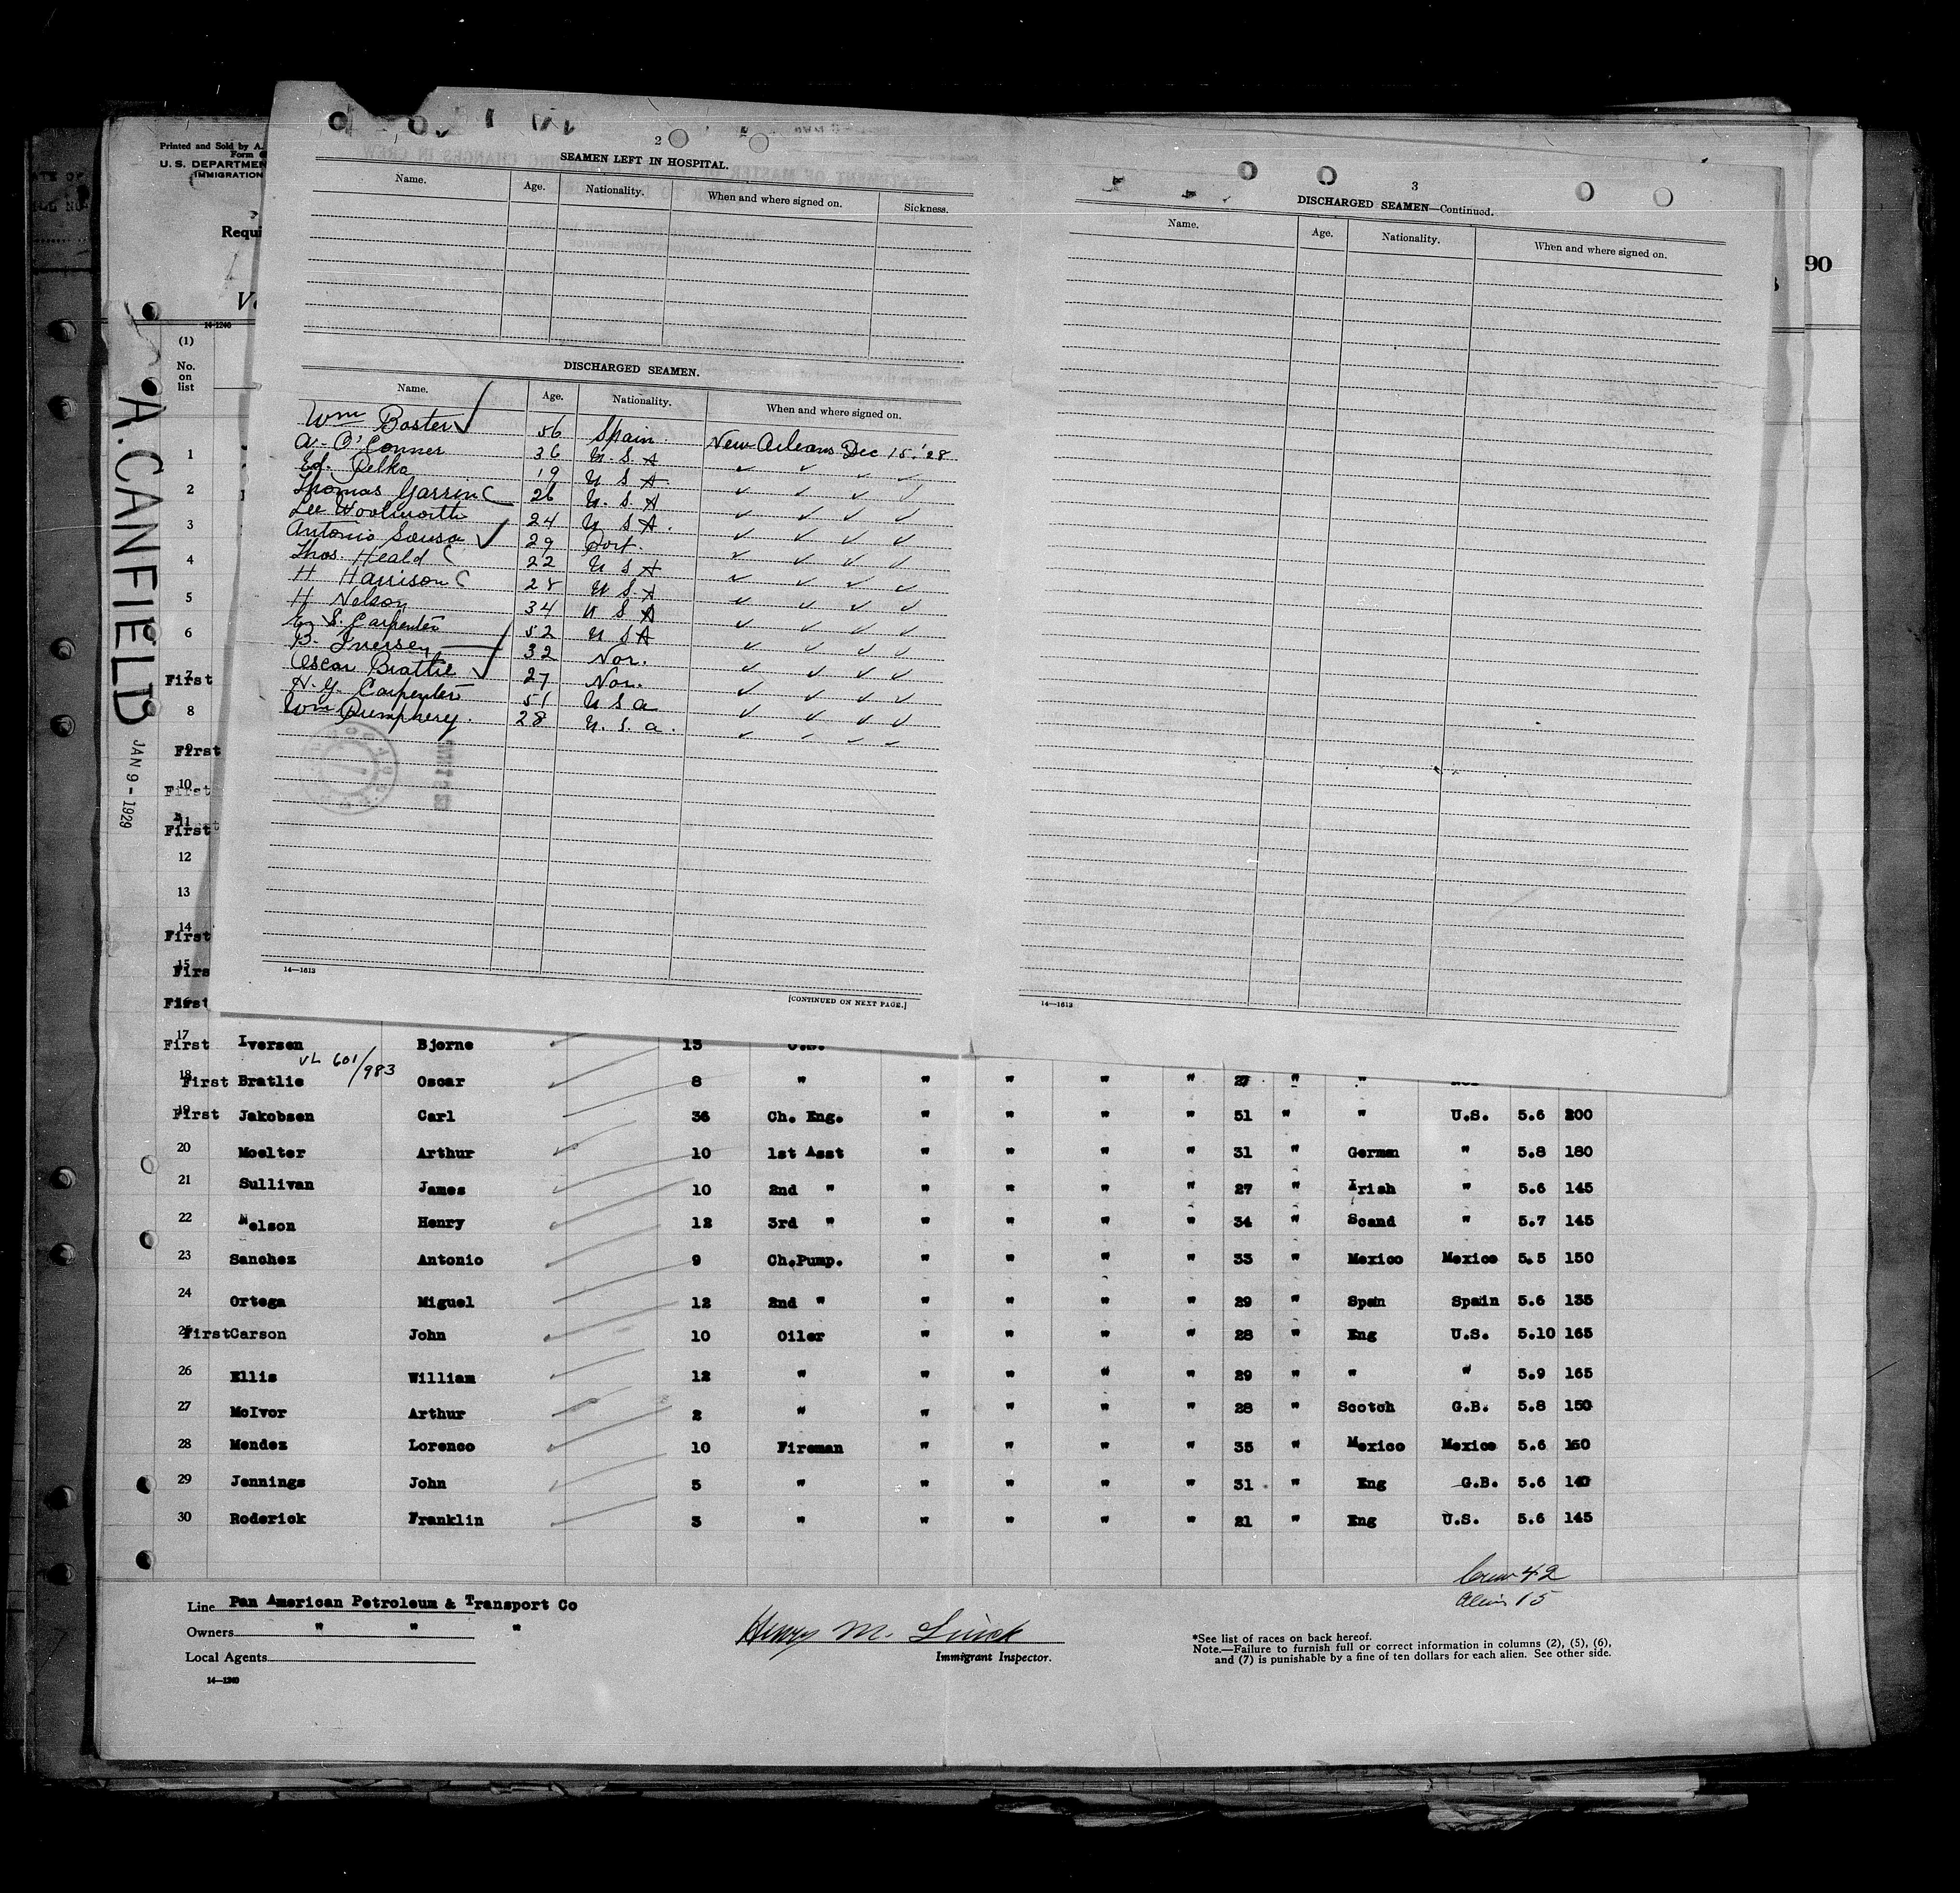 Printed and Sold by A.
Form
U. S. DEPARTMEN
IMMIGRATION
Requi
14-1240
(1)
No.
on
list
A. CANFIELD
JAN 9 - 1929
90
2
SEAMEN LEFT IN HOSPITAL.
Name. Age. Nationality. When and where signed on. Sickness.
DISCHARGED SEAMEN.
Name. Age. Nationality. When and where signed on.
Wm Boster 56 Spain. New Orleans Dec 15. '28
A. O'Conner 36 U. S. A
Ed. Pelka 19 U S A
Thomas Garrin 26 U. S. A
Lee Woolworth 24 U S A.
Antonio Sousa 29 Port.
Thos. Heald 22 U S A
H Harrison 28 U S. A
H Nelson 34 U S A
E. S. Carpenter 52 U S A
B. Iversen 32 Nor.
Oscar Brattie 27 Nor.
H. G. Carpenter 51 U S a
Wm Pumphery. 28 U. S. a.
14—1613
[CONTINUED ON NEXT PAGE.]
3
DISCHARGED SEAMEN—Continued.
Name. Age. Nationality. When and where signed on.
14—1613
1
2
3
4
5
6
7 First
8
9 First
10 First
11 First
12
13
14 First
15 Firs
16 First
17 First Iversen Bjorne 13
VL 601/983
18 First Bratlie Oscar 8 " " " " " 27 " "
19 First Jakobsen Carl 36 Ch. Eng. " " " " 51 " " U.S. 5.6 200
20 Moelter Arthur 10 1st Asst " " " " 31 " German " 5.8 180
21 Sullivan James 10 2nd " " " " " 27 " Irish " 5.6 145
22 Nelson Henry 12 3rd " " " " " 34 " Scand " 5.7 145
23 Sanchez Antonio 9 Ch.Pump. " " " " 33 " Mexico Mexico 5.5 150
24 Ortega Miguel 12 2nd " " " " " 29 " Span Spain 5.6 135
25 First Carson John 10 Oiler " " " " 28 " Eng U.S. 5.10 165
26 Ellis William 12 " " " " " 29 " " " 5.9 165
27 McIvor Arthur 2 " " " " " 28 " Scotch G.B. 5.8 150
28 Mendez Lorenco 10 Fireman " " " " 35 " Mexico Mexico 5.6 150
29 Jennings John 5 " " " " " 31 " Eng G.B. 5.6 140
30 Roderick Franklin 3 " " " " " 21 " Eng U.S. 5.6 145
Crew 42
Alien 15
Line Pan American Petroleum & Transport Co
Owners " " "
Local Agents
14—1240
Henry M. Linck
Immigrant Inspector.
*See list of races on back hereof.
Note.—Failure to furnish full or correct information in columns (2), (5), (6),
and (7) is punishable by a fine of ten dollars for each alien. See other side.